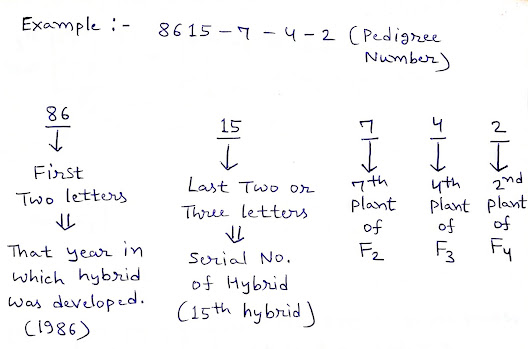 Example :- 8615-7-4-2 (Pedigree
Number)
86
First
Two letters
⇓
That year in
which hybrid
was developed.
(1986)
15
Last Two or
Three letters
⇓
Serial No.
of Hybrid
(15th hybrid)
7
7th
plant
of
F2
4
4th
plant
of
F3
2
2nd
plant
of
F4